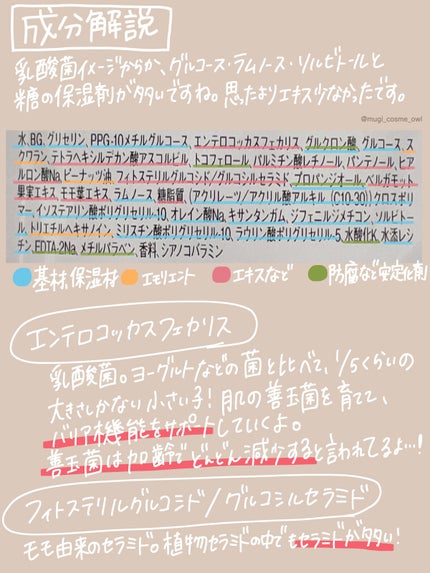 成分解説
乳酸菌イメージだからか、グルコース・ラムノース・ソルビトールと
糖の保湿剤が多いですね。思ったよりエキス少なかったです。
@mugi_cosme_owl
水、BG、グリセリン、PPG-10メチルグルコース、エンテロコッカスフェカリス、グルクロン酸、グルコース、ス
クワラン、テトラヘキシルデカン酸アスコルビル、トコフェロール、パルミチン酸レチノール、パンテノール、ヒア
ルロン酸Na、ピーナッツ油、フィトステリルグルコシド/グルコシルセラミド、プロパンジオール、ベルガモット
果実エキス、モモ葉エキス、ラムノース、糖脂質、(アクリレーツ/アクリル酸アルキル(C10-30))クロスポリ
マー、イソステアリン酸ポリグリセリル-10、オレイン酸Na、キサンタンガム、ジフェニルジメチコン、ソルビトー
ル、トリエチルヘキサノイン、ミリスチン酸ポリグリセリル-10、ラウリン酸ポリグリセリル-5、水酸化K、水添レシ
チン、EDTA-2Na、メチルパラベン、香料、シアノコバラミン
基材、保湿材 エモリエント エキスなど 防腐など安定化剤
エンテロコッカスフェカリス
乳酸菌。ヨーグルトなどの菌と比べて、1/5くらいの
大きさしかない小さい子!肌の善玉菌を育てて、
バリア機能をサポートしていくよ。
善玉菌は加齢でどんどん減少すると言われてるよ…!
フィトステリルグルコシド/グルコシルセラミド
モモ由来のセラミド。植物セラミドの中でもセラミドが多い!